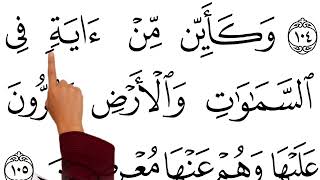 ١٠٤ وَكَأَيِّن مِّنْ ءَايَةٍ فِى
ٱلسَّمَٰوَٰتِ وَٱلْأَرْضِ
عَلَيْهَا وَهُمْ عَنْهَا ١٠٥